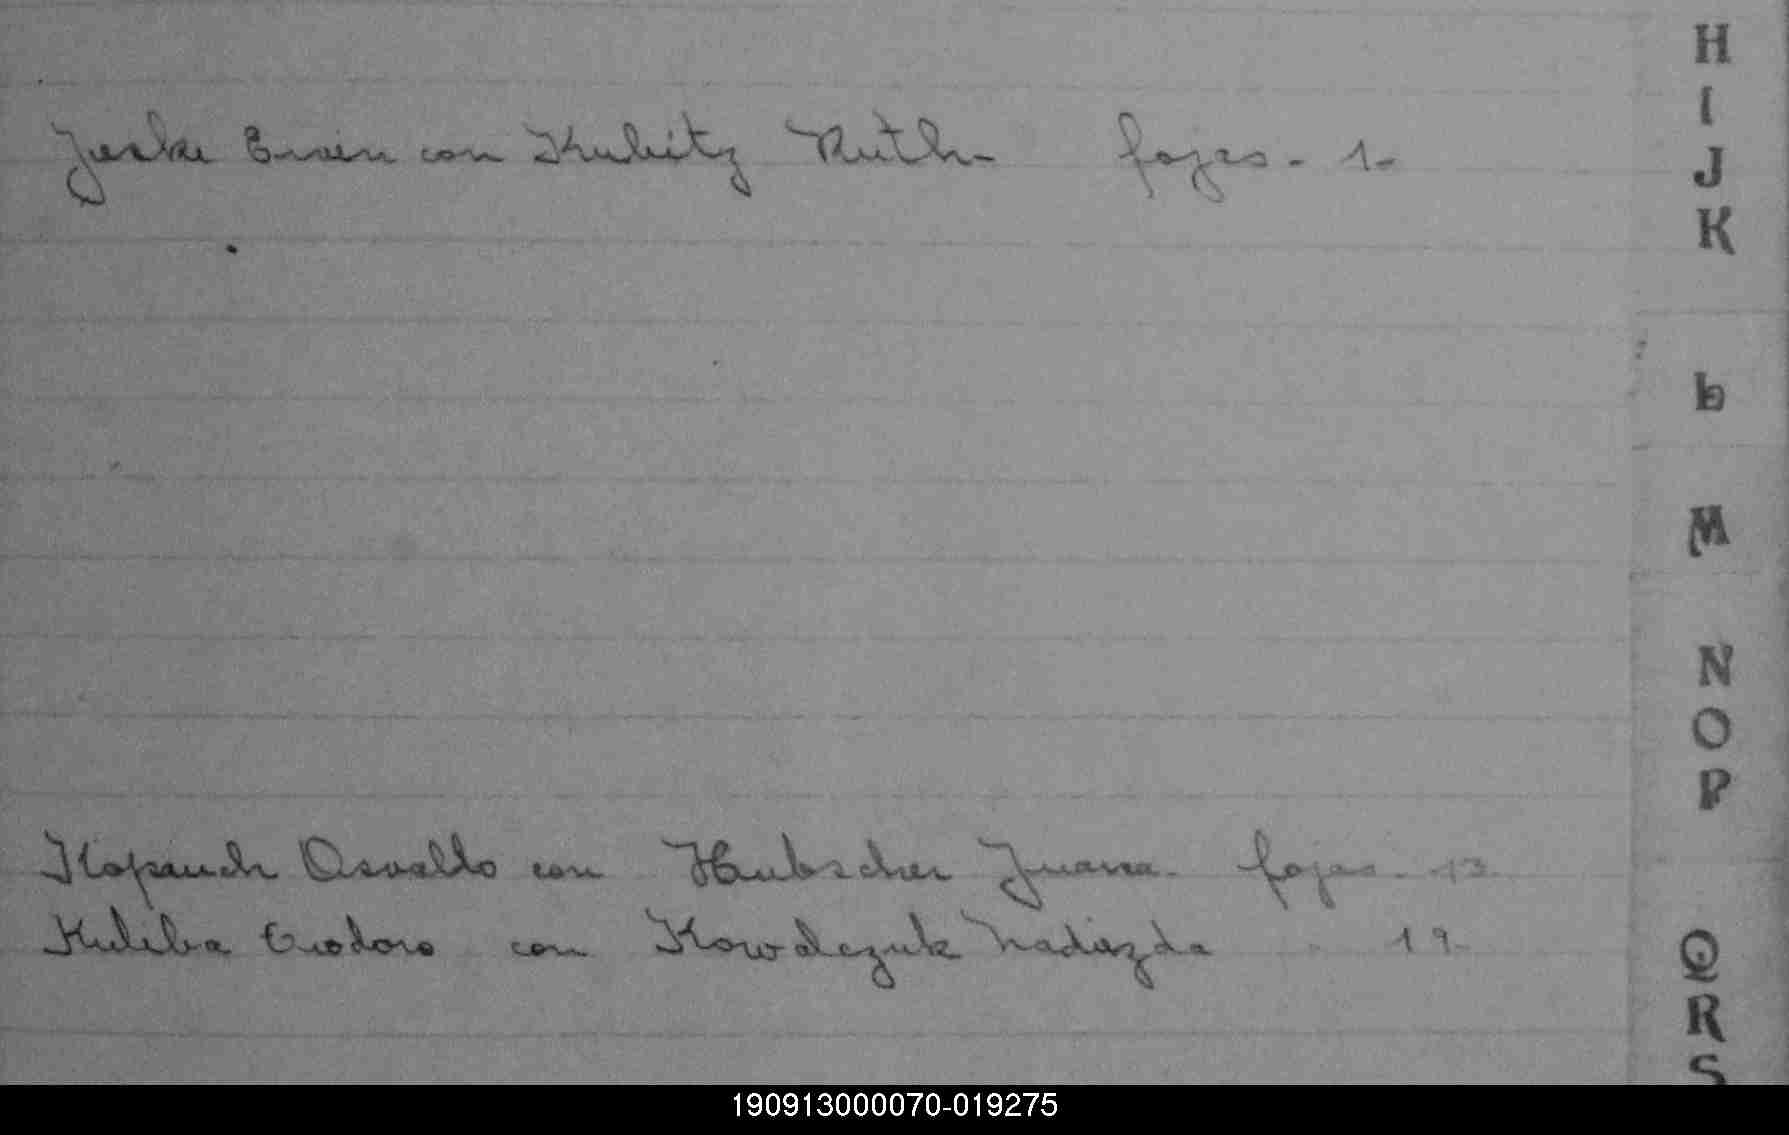 Jeske Erwin con Kubitz Ruth- fojas- 1-
Osvaldo con Hubscher Juana- fojas- 13-
Kuliba Teodoro con Kowalczuk Nadiezda 19-
H
I
J
K
L
M
N
O
P
Q
R
S
190913000070-019275